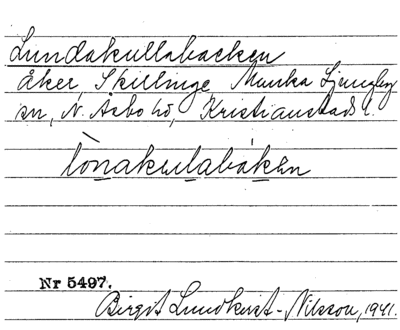 Lundakullabacken
åker, Skillinge, Munka Ljungby
sn, N. Åsbo hd, Kristianstads l.
lònakulabáken
Nr 5497.
Birgit Lundkvist-Nilsson, 1941.